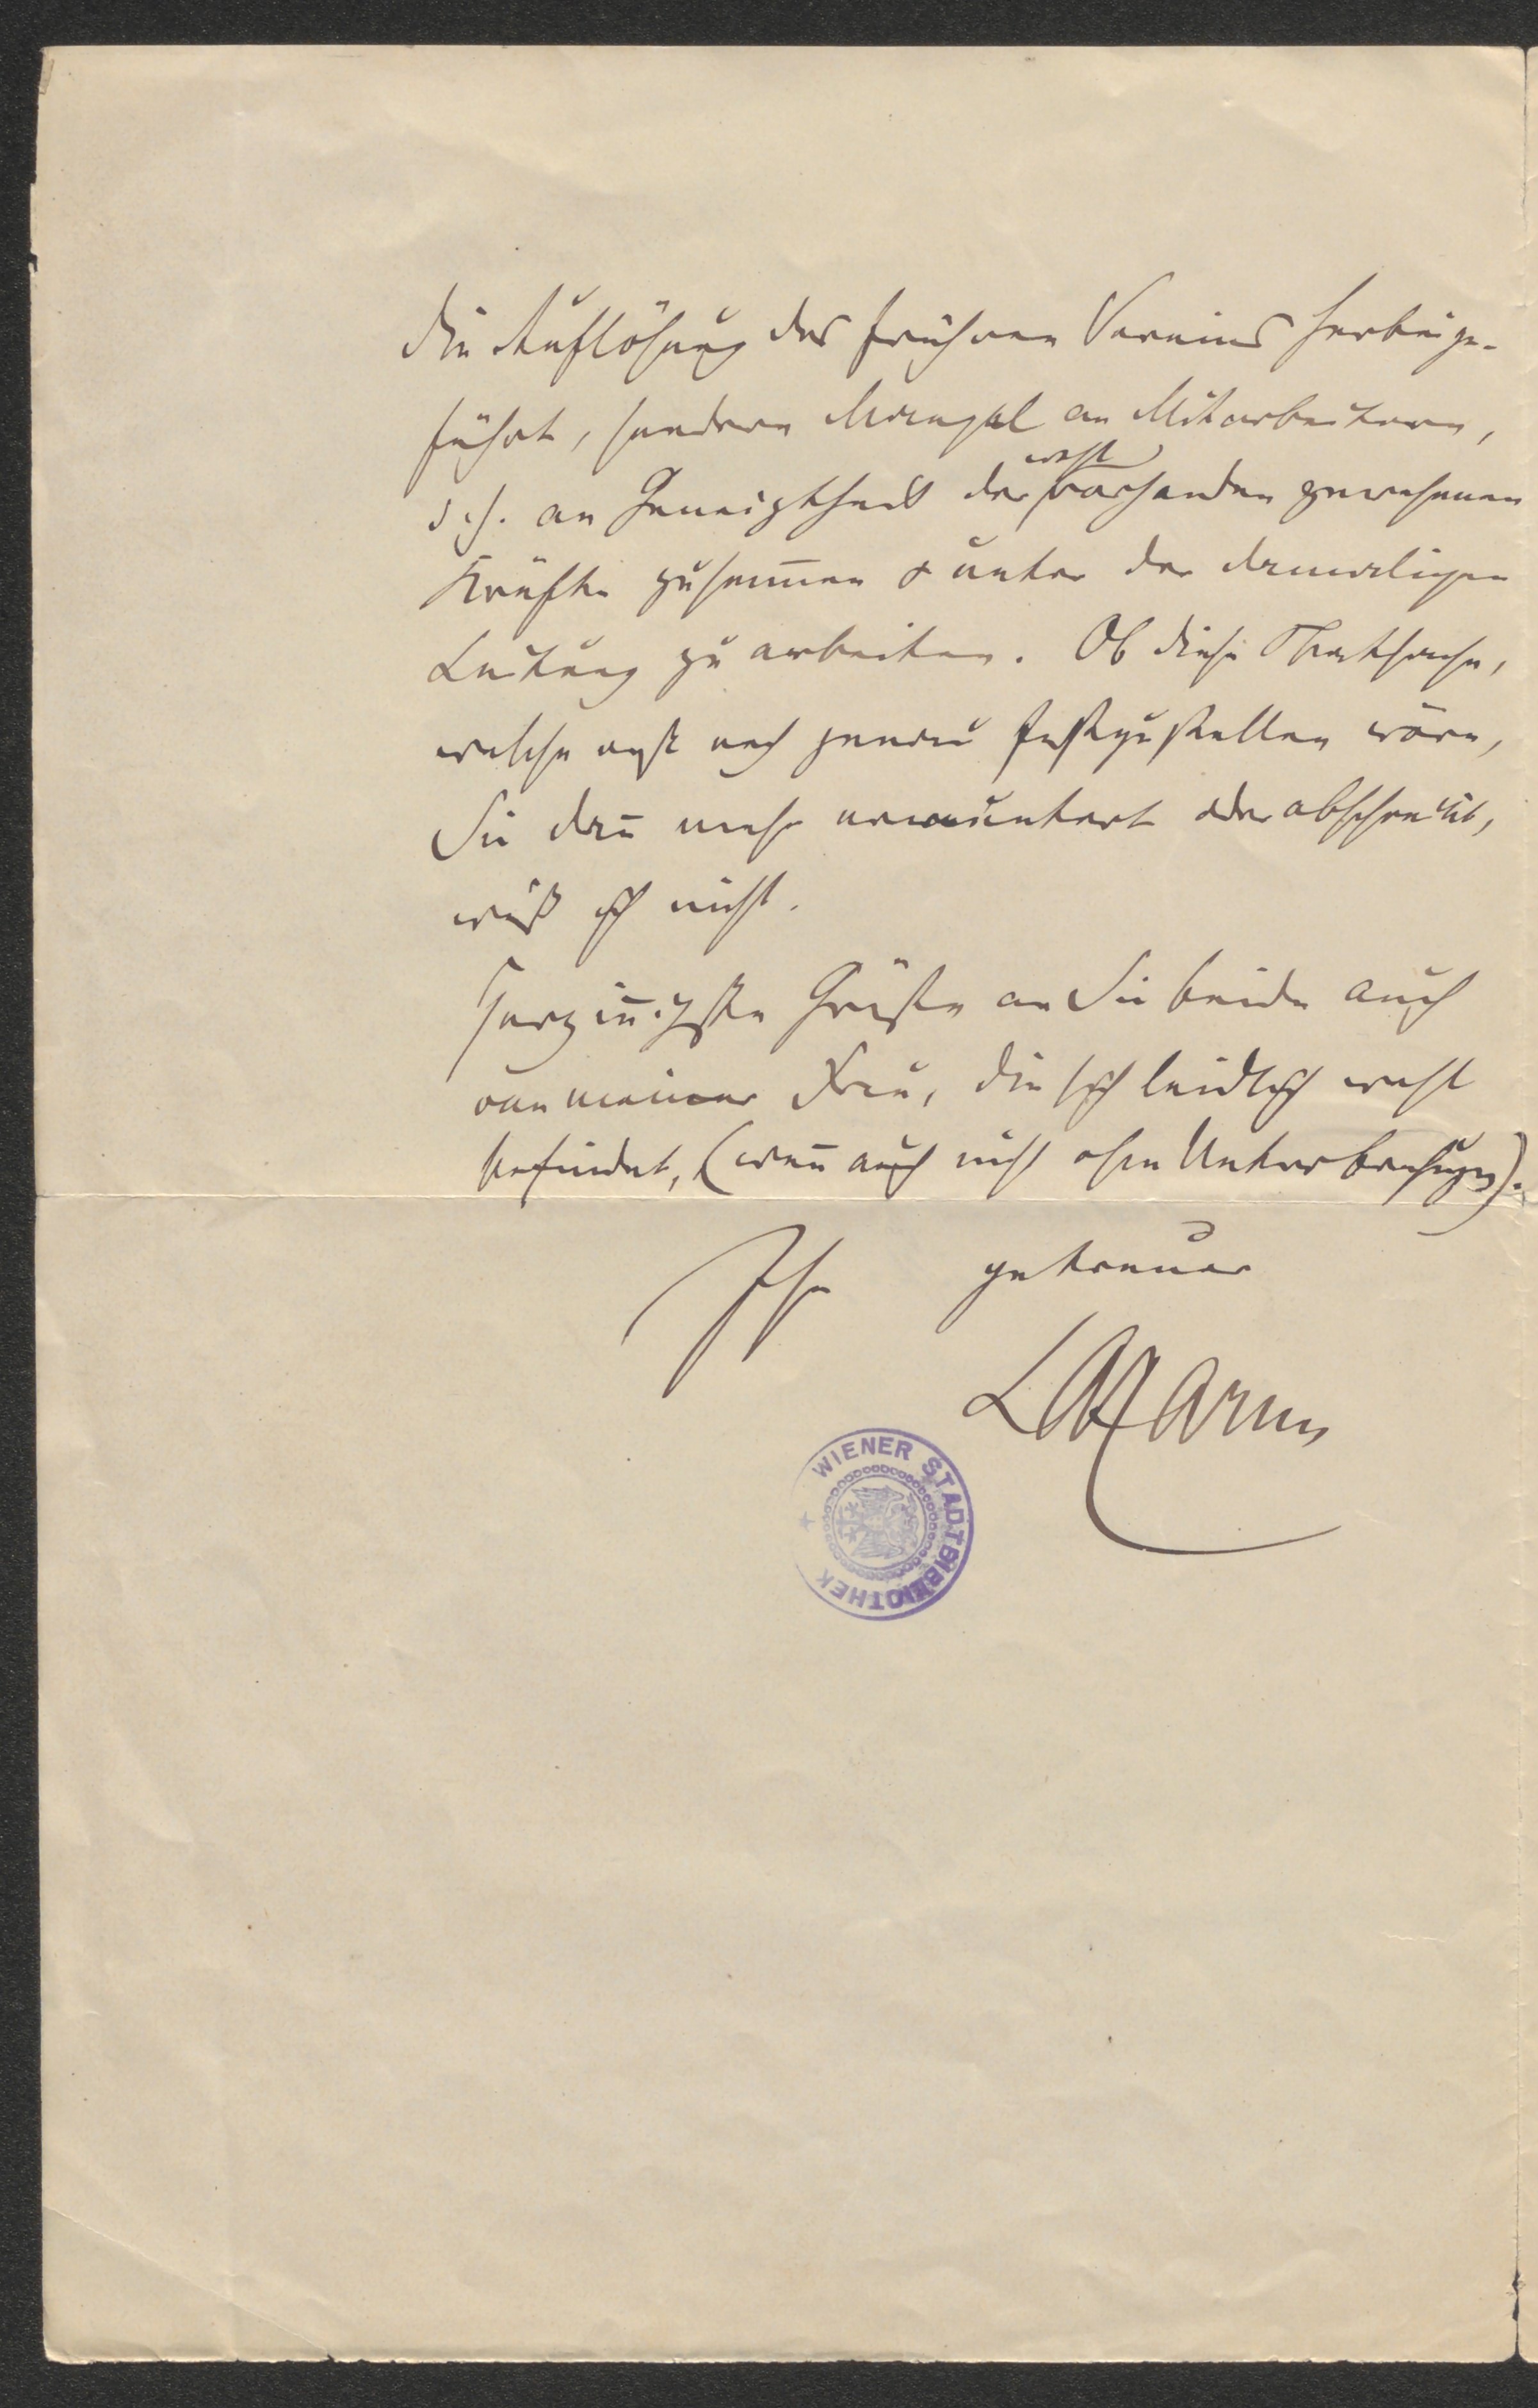 die Auflösung des früheren Vereins herbeige-
führt, sondern Mangel an Mitarbeitern,
wohl
d.h. an Geneigtheit der vorhanden gewesenen
Kräfte zusam̅en & unter der damaligen
Leitung zu arbeiten. Ob diese Thatsache,
welche erst noch genau festzustellen wäre,
Sie dan̅ mehr ermuntert oder abschreckt,
weiß ich nicht.
Herzin̅igste Grüße an Sie beide auch
von meiner Frau, die sich leidlich wohl
befindet, (wen̅ auch nicht ohne Unterbrechung).
Ihr getreuer
Lazarus
WIENER STADTBIBLIOTHEK